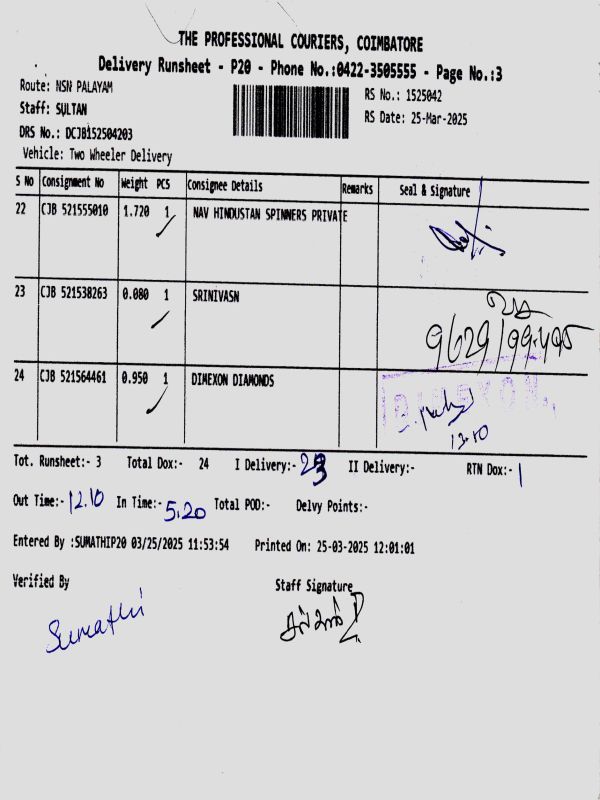 THE PROFESSIONAL COURIERS, COIMBATORE
Delivery Runsheet - P20 - Phone No.:0422-3505555 - Page No.:3
Route: NSN PALAYAM
RS No.: 1525042
Staff: SULTAN
RS Date: 25-Mar-2025
DRS No.: DCJB152504203
Vehicle: Two Wheeler Delivery
S No Consignment No Weight PCS Consignee Details Remarks Seal & Signature
22 CJB 521555010 1.720 1 NAV HINDUSTAN SPINNERS PRIVATE
23 CJB 521538263 0.080 1 SRINIVASN
24 CJB 521564461 0.950 1 DIMEXON DIAMONDS
12.10
Tot. Runsheet:- 3 Total Dox:- 24 I Delivery:- 23 II Delivery:- RTN Dox:- 1
Out Time:- 12.10 In Time:- 5.20 Total POD:- Delvy Points:-
Entered By :SUMATHIP20 03/25/2025 11:53:54 Printed On: 25-03-2025 12:01:01
Verified By Staff Signature
Sumathi